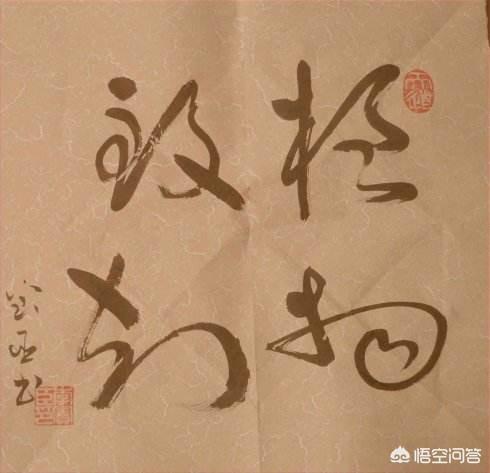 格物
致知
悟空问答